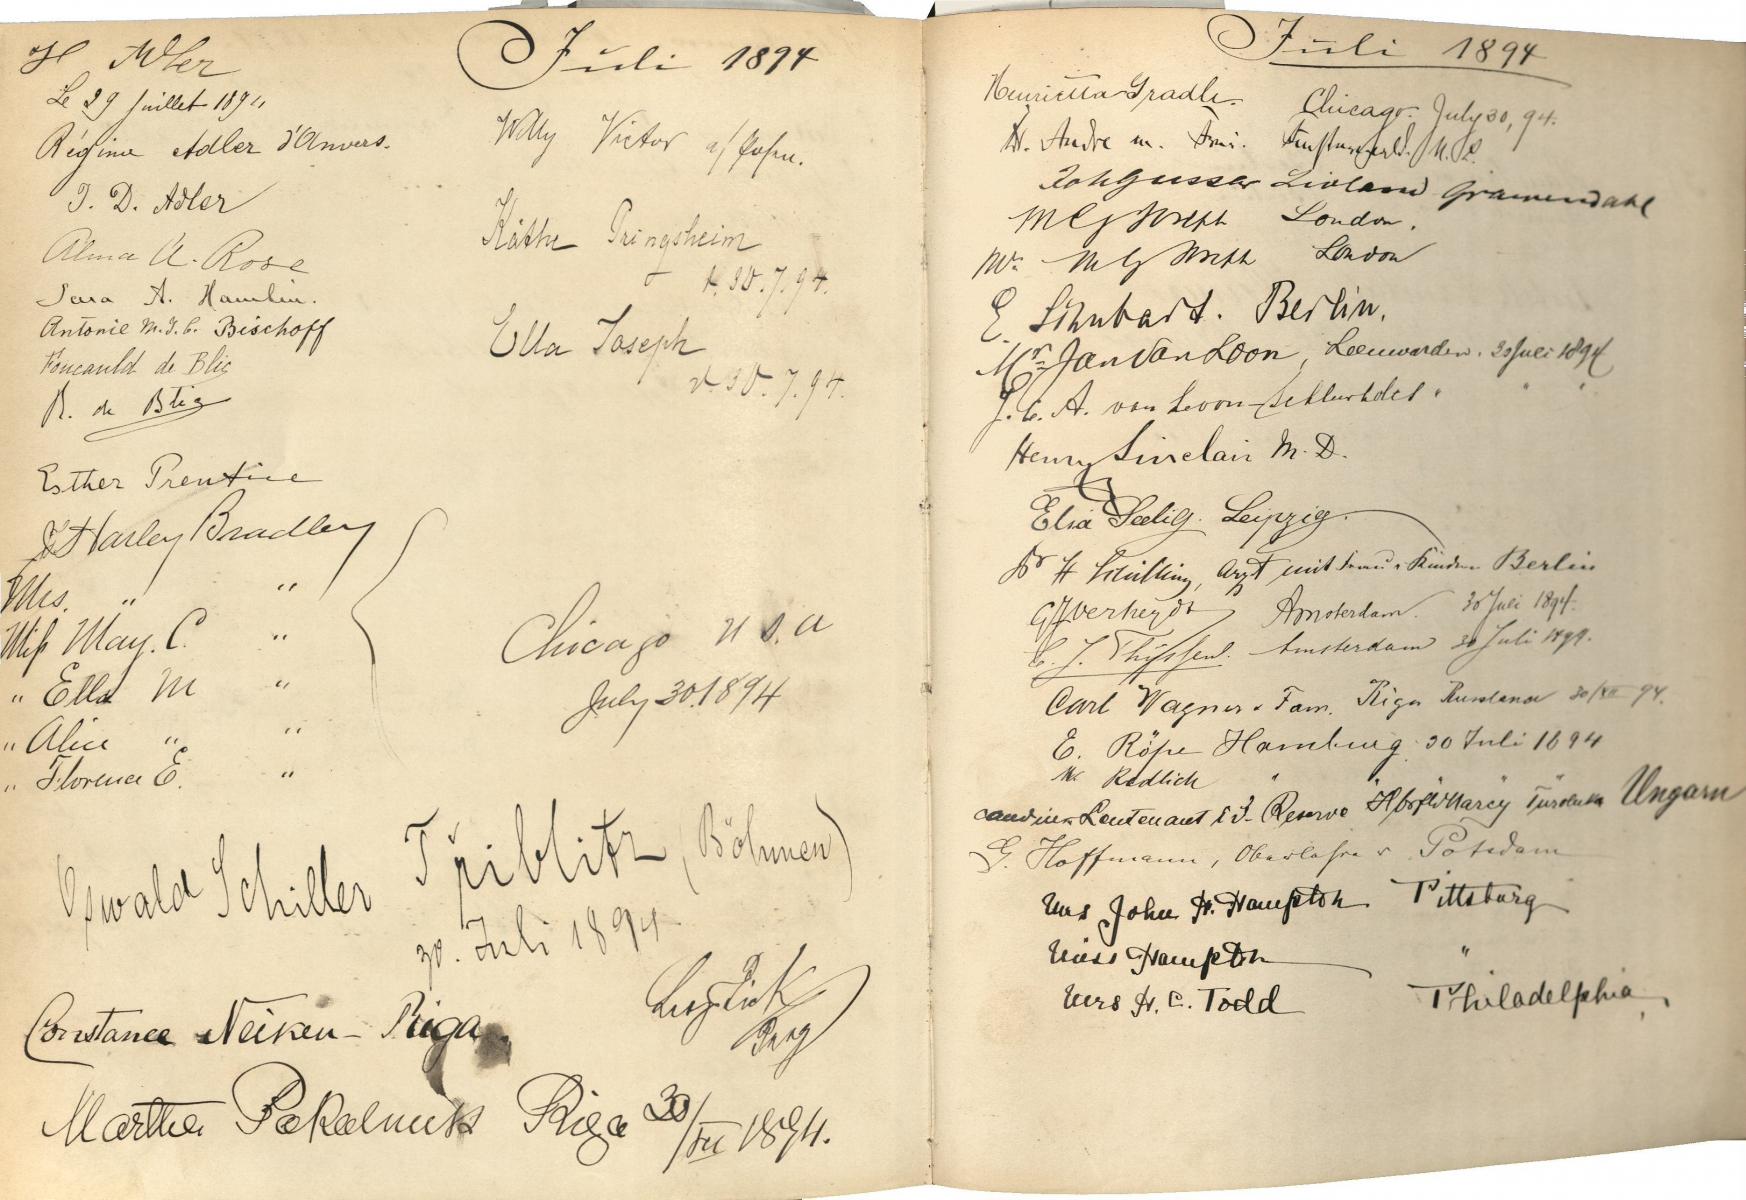 Juli 1894
H Adler
Le 29 Juillet 1894
Régine Adler d'Anvers.
J. D. Adler
Alma A. Rose
Sara A. Hamlin.
Antonie M. J. C. Bischoff
Foucauld de Blic
R. de Blic
Esther Prentice
J Harley Bradley
Mrs. " "
Miss May. C. "
" Ella M "
" Alice " "
" Florence E. "
Chicago U S. A
July 30. 1894
Willy Victor
Käthe Pringsheim
d. 30. 7. 94.
Ella Joseph
d. 30. 7. 94.
Oswald Schiller (Böhmen)
30. Juli 1894
Prag
Constance Neiken - Riga
Martha Pakalneek Riga 30/VII 1894.
Juli 1894
Henrietta Gradle. Chicago. July 30, 94.
Andre
Livland
M G Joseph London.
Mrs M G Joseph London
E. Berlin.
Mr. Jan van Loon, Leeuwarden. 30 Juli 1894
J. C. A. van Loon " " "
Henry Sinclair M. D.
Elsa Seelig. Leipzig.
Dr H Schilling, Arzt mit Frau u Kindern Berlin
Verheydt Amsterdam. 30 Juli 1894.
C. J. Thijssen. Amsterdam 30 Juli 1894.
Carl Wagner u Fam. Riga Russland 30/VII 94.
E. Röpe Hamburg 30 Juli 1894
Redlich " " "
Leutenant i. d. Reserve Ungarn
G. Hoffmann, Potsdam
Mrs John H. Hampton Pittsburg
Miss Hampton "
Mrs H. C. Todd Philadelphia